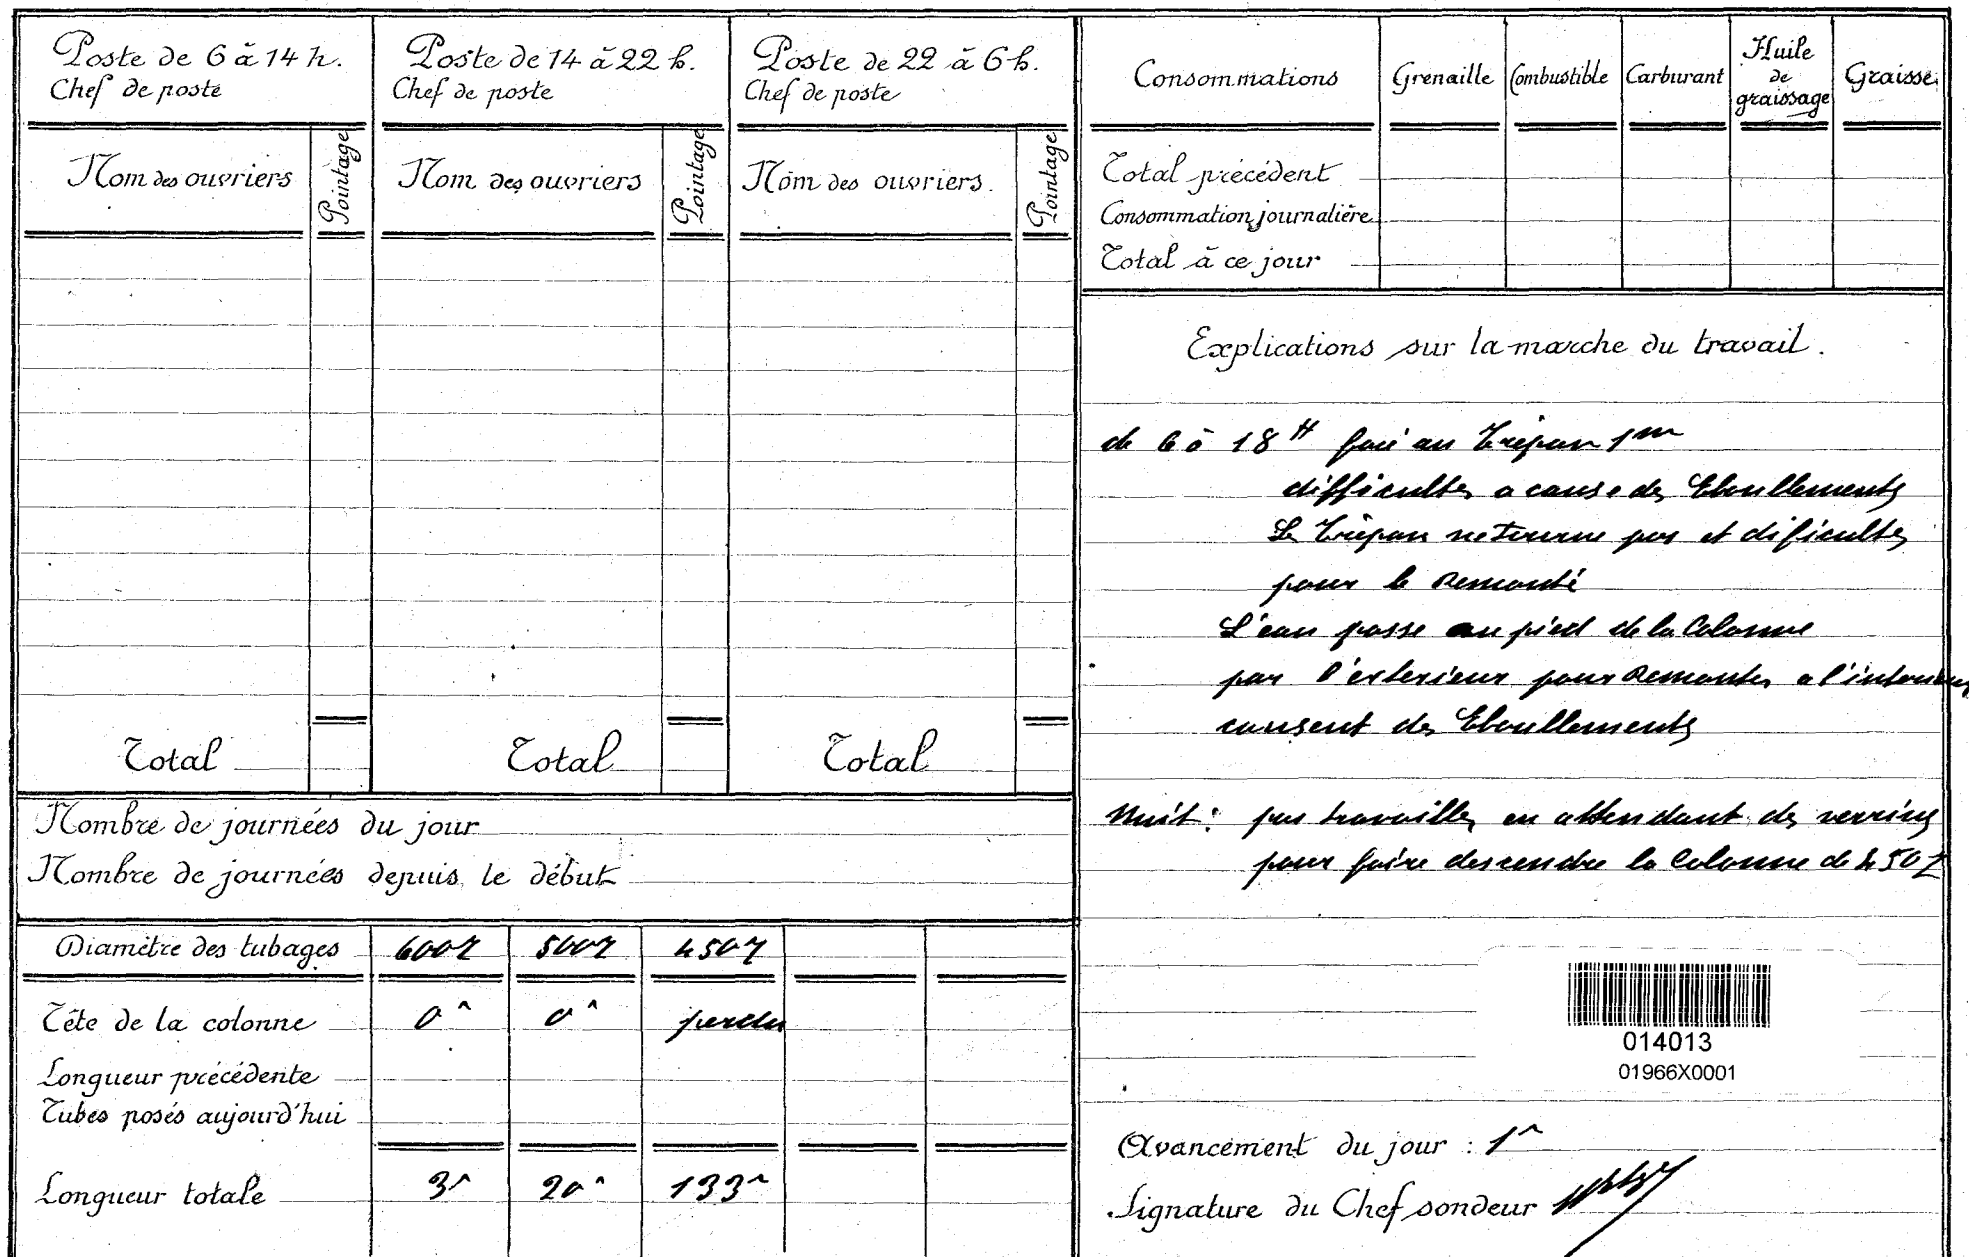 Poste de 6 à 14 h.
Chef de poste
Nom des ouvriers
Pointage
Total
Poste de 14 à 22 h.
Chef de poste
Nom des ouvriers
Pointage
Total
Poste de 22 à 6 h.
Chef de poste
Nom des ouvriers.
Pointage
Total
Nombre de journées du jour
Nombre de journées depuis le début
Diamètre des tubages 600 500 450
Tête de la colonne 0m 0m perdu
Longueur précédente
Tubes posés aujourd'hui
Longueur totale 3m 20m 133m
Consommations Grenaille Combustible Carburant Huile de graissage Graisse
Total précédent
Consommation journalière
Total à ce jour
Explications sur la marche du travail.
de 6 à 18 H foré au Trépan 1m
difficultés a cause des Eboullements
Le Trépan ne tourne pas et dificultés
pour le Remonté
L'eau passe au pied de la Colonne
par l'exterieur pour Remonter a l'interieur
causent des Eboullements
Nuit : pas travailler en attendant des verrins
pour faire descendre la Colonne de 450
014013
01966X0001
Avancement du jour : 1m
Signature du Chef sondeur